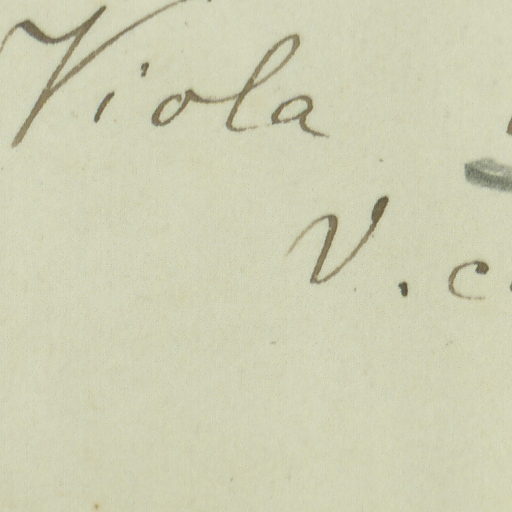 Viola
V. c